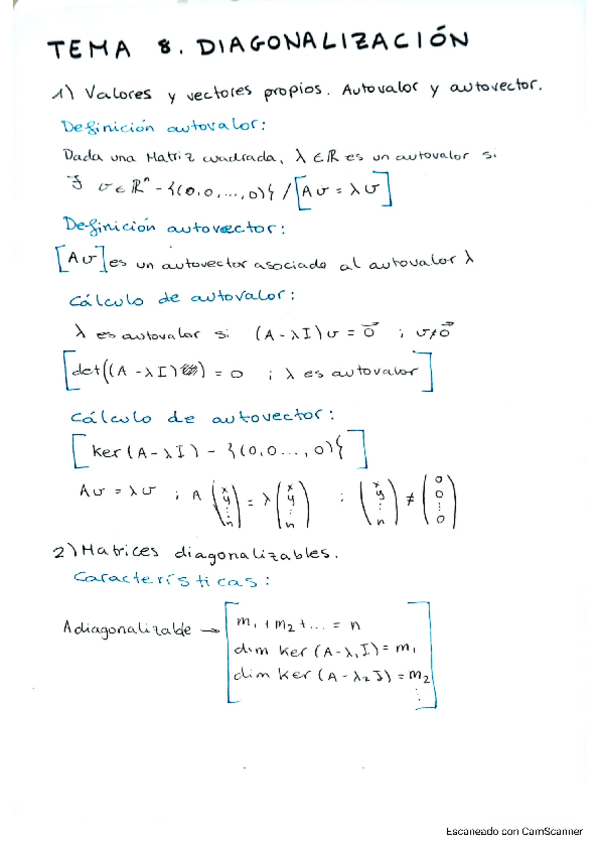 TEMA 8. DIAGONALIZACIÓN
1) Valores y vectores propios. Autovalor y autovector.
Definición autovalor:
Dada una Matriz cuadrada, λ ∈ ℝ es un autovalor si
∃ v ∈ ℝⁿ - {(0,0,...,0)} / [Av = λv]
Definición autovector:
[Av] es un autovector asociado al autovalor λ
Cálculo de autovalor:
λ es autovalor si (A - λI)v = 0⃗ ; v ≠ 0⃗
[det((A - λI)) = 0 ; λ es autovalor]
Cálculo de autovector:
[ker(A - λI) - {(0,0...,0)}]
Av = λv ; A (x y ⋮ n) = λ (x y ⋮ n) ; (x y ⋮ n) ≠ (0 0 ⋮ 0)
2) Matrices diagonalizables.
Características:
A diagonalizable → [m₁ + m₂ + ... = n
dim ker (A - λ₁I) = m₁
dim ker (A - λ₂I) = m₂
⋮]
Escaneado con CamScanner